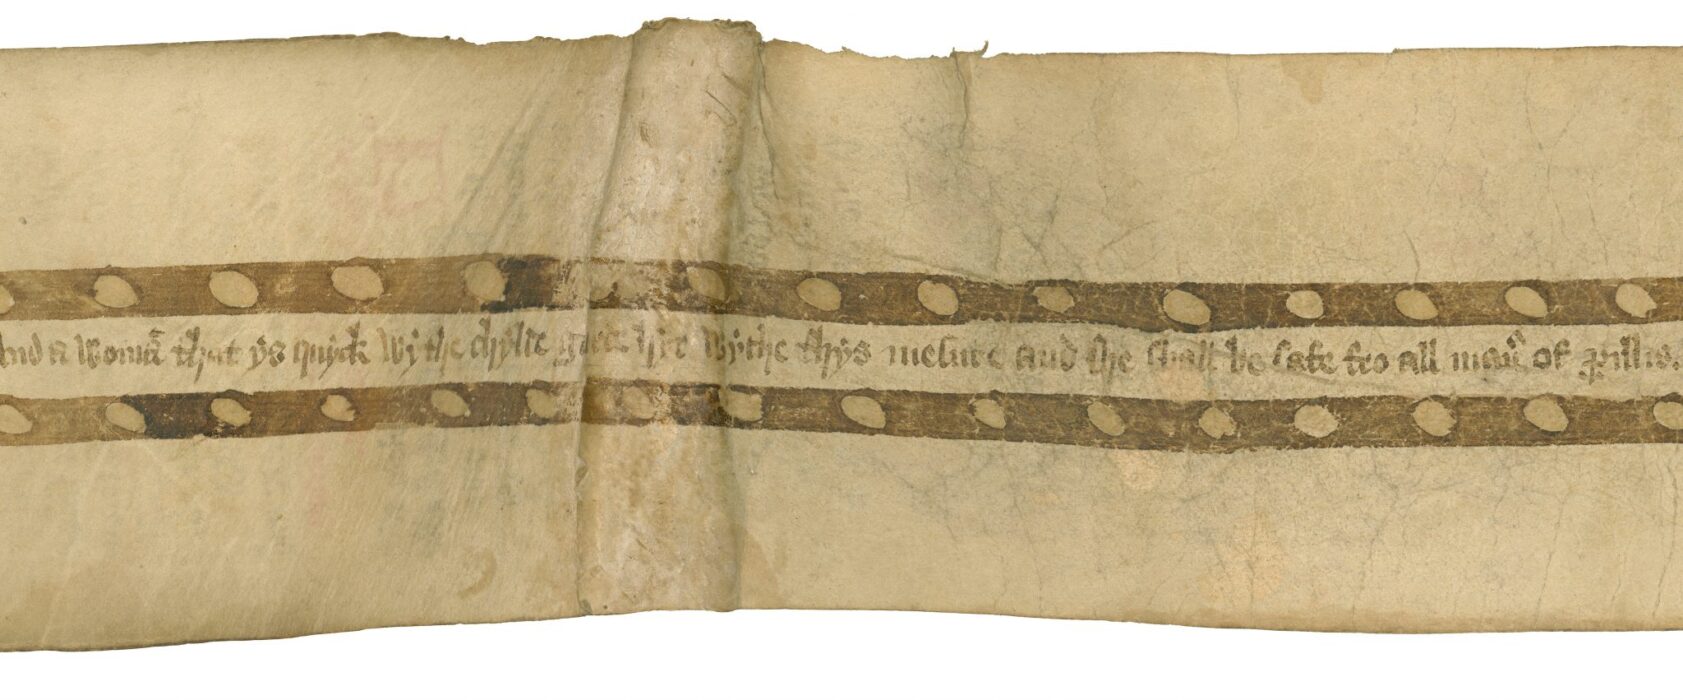 And a womā that ys quyck wythe chylde gyrde hyr wythe thys mesure and she shall be safe fro all manr̄ of ꝑillis.